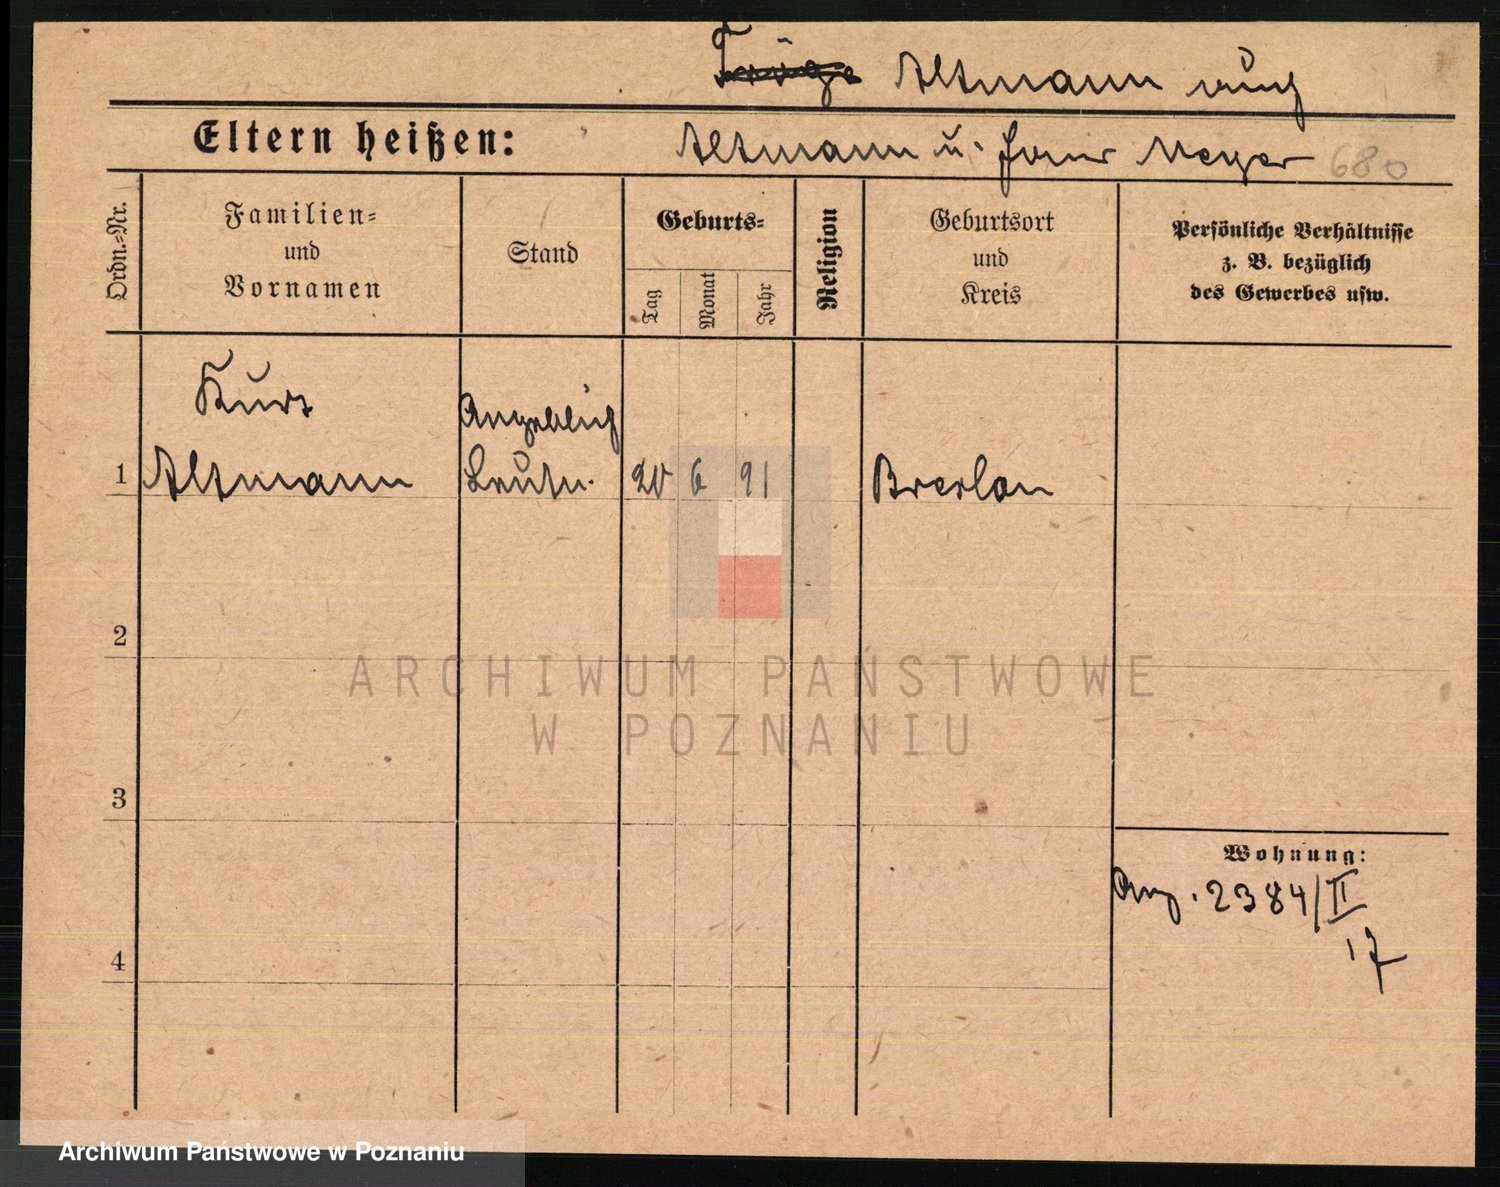 Altmann auch
Eltern heißen: Altmann u. Meyer 680
Ordn.=Nr.
Familien=
und
Vornamen
Stand
Geburts=
Tag
Monat
Jahr
Religion
Geburtsort
und
Kreis
Persönliche Verhältnisse
z. B. bezüglich
des Gewerbes usw.
Kurt
Angeblich
1 Altmann Leutn. 20 6 91 Breslau
2
ARCHIWUM PAŃSTWOWE
W POZNANIU
3
Wohnung:
Ang. 2384/II
17
4
Archiwum Państwowe w Poznaniu